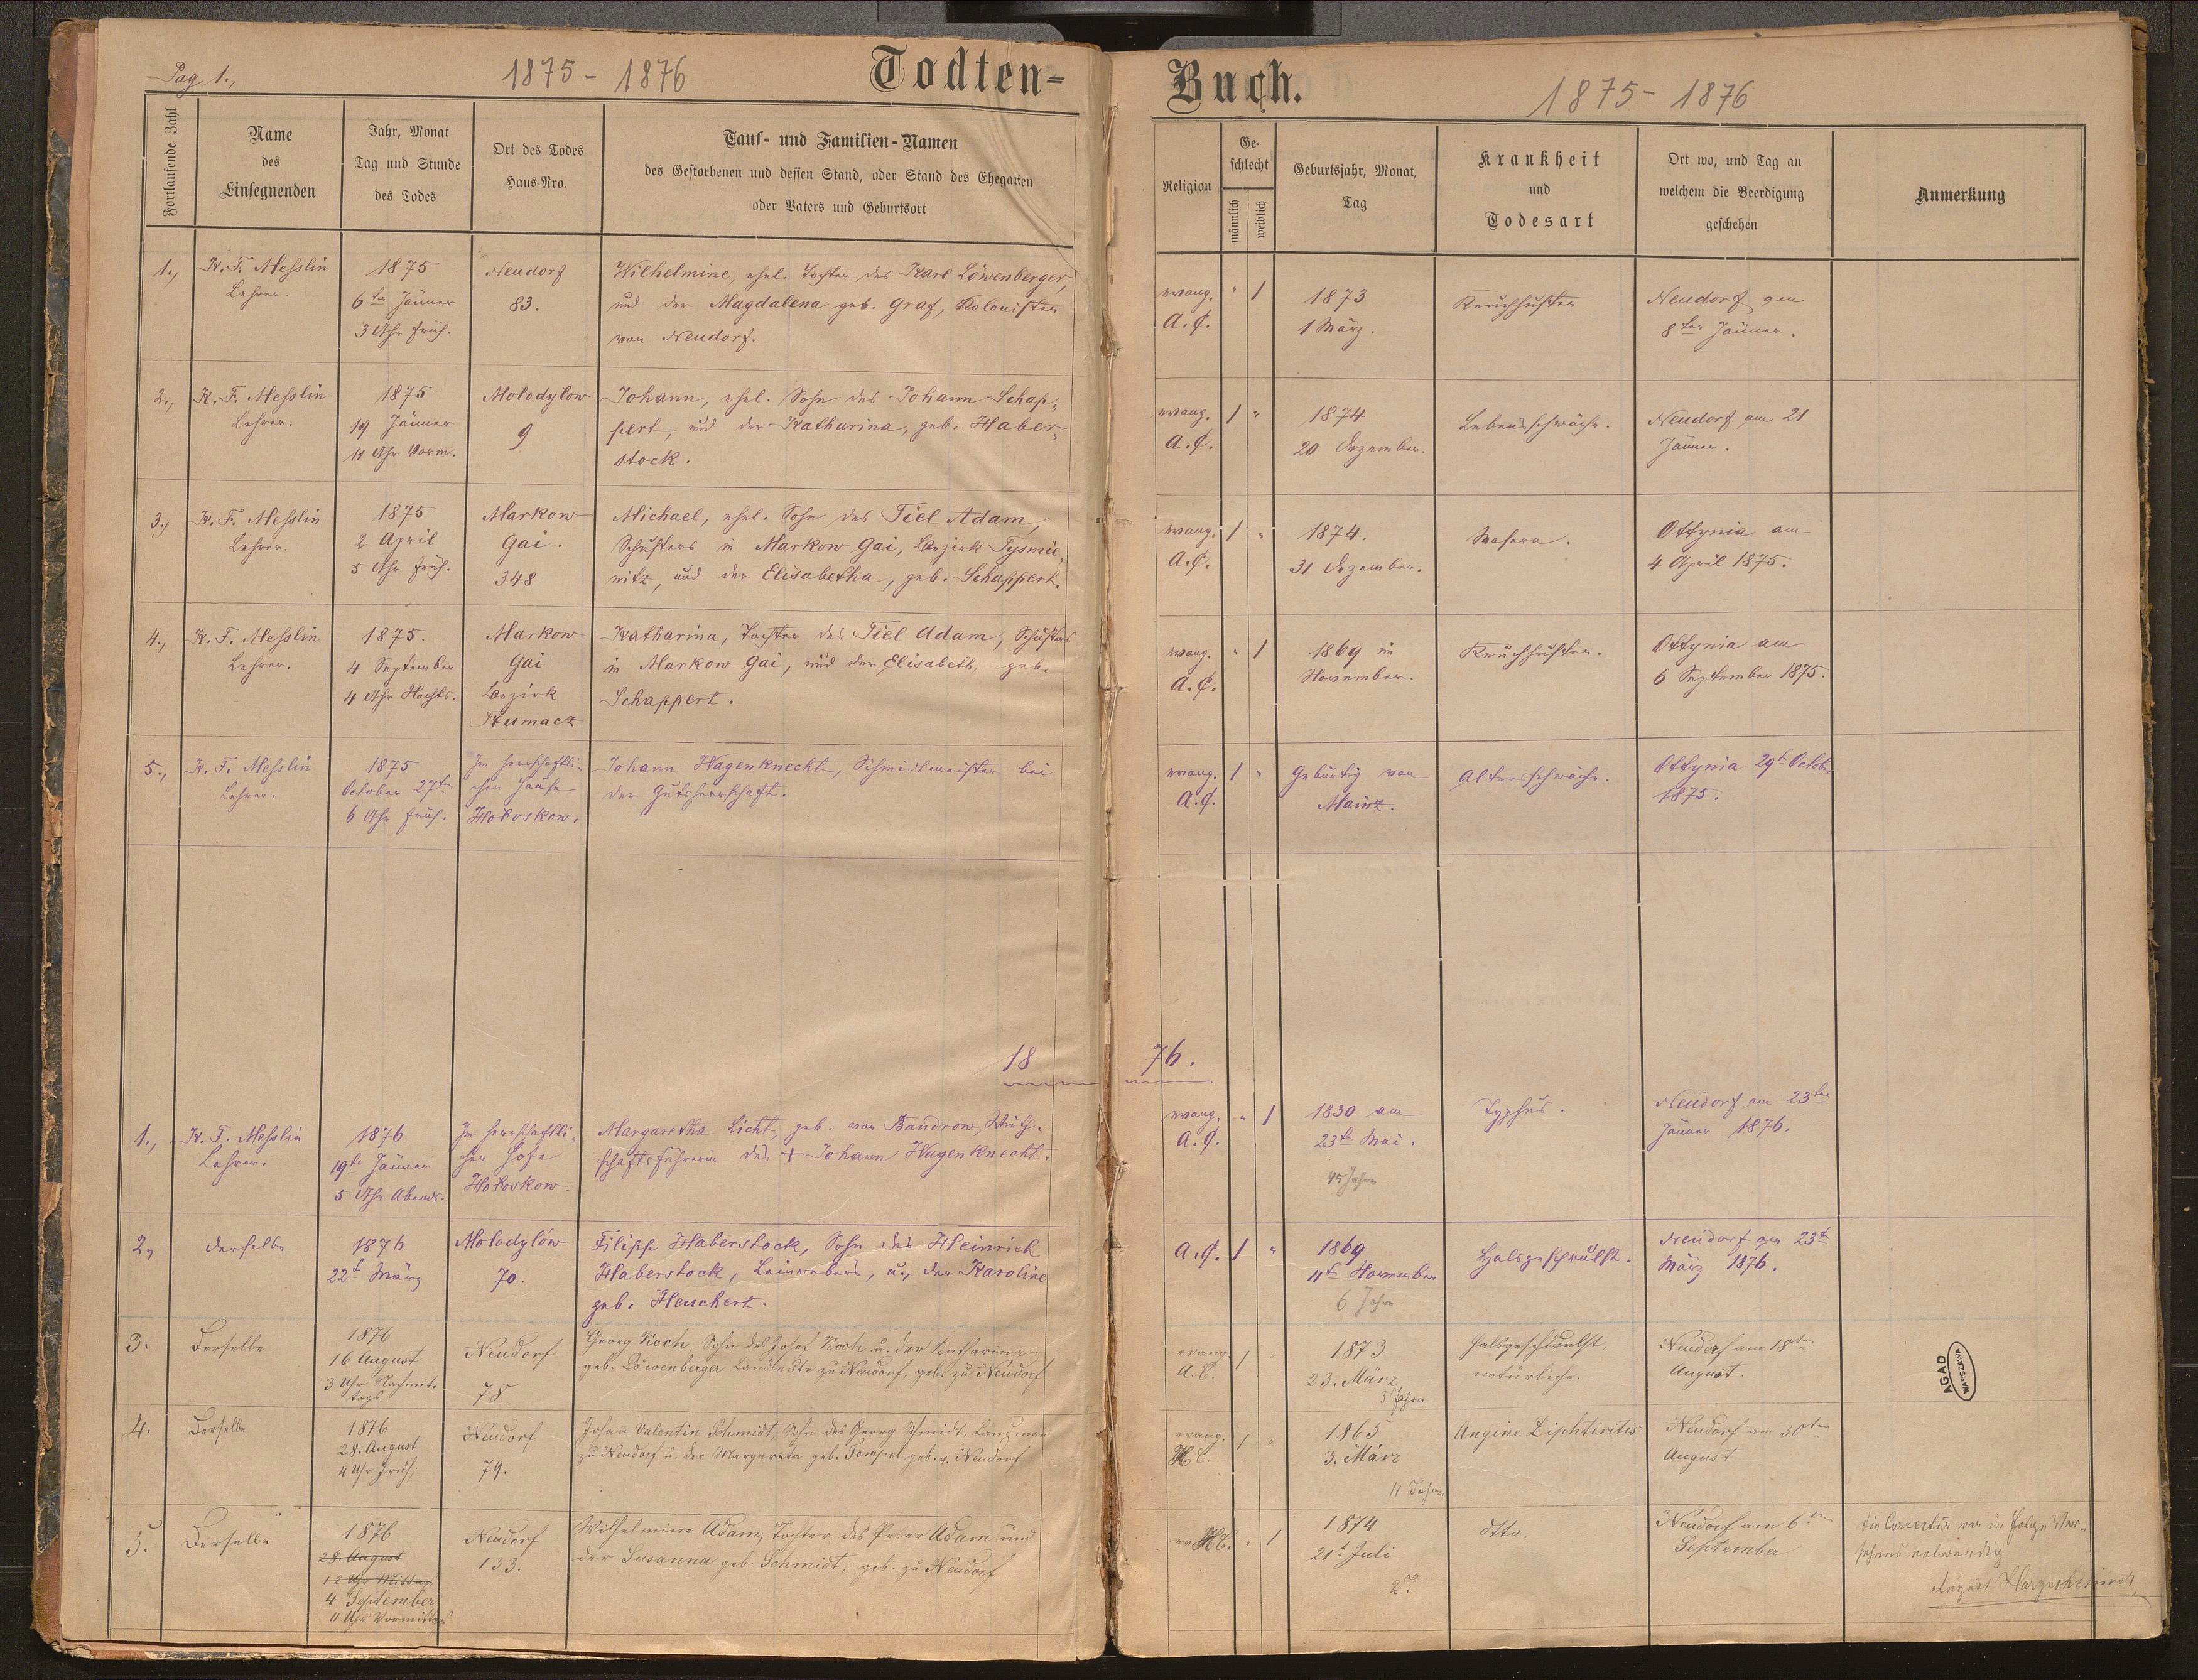 Pag 1.,
1875 - 1876
Todten-
Buch.
1875 - 1876
Fortlaufende Zahl
Name
des
Einsegnenden
Jahr, Monat
Tag und Stunde
des Todes
Ort des Todes
Haus-Nro.
Tauf- und Familien-Namen
des Gestorbenen und dessen Stand, oder Stand des Ehegatten
oder Vaters und Geburtsort
Religion
Ge-
schlecht
männlich
weiblich
Geburtsjahr, Monat,
Tag
Krankheit
und
Todesart
Ort wo, und Tag an
welchem die Beerdigung
geschehen
Anmerkung
1.,
K. F. Messlin
Lehrer.
1875
6ten Jänner
3 Uhr Früh.
Neudorf
83.
Wilhelmine, ehel. Tochter des Karl Löwenberger,
und der Magdalena geb. Graf, Kolonisten
von Neudorf.
evang.
A.C.
" 1
1873
1 März.
Keuchhusten
Neudorf am
8ten Jänner.
2.,
K. F. Messlin
Lehrer.
1875
19 Jänner
11 Uhr Vorm.
Molodylow
9
Johann, ehel. Sohn des Johann Schap-
pert, und der Katharina, geb. Haber-
stock.
evang.
A.C.
1 "
1874
20 Dezember.
Lebensschwäche.
Neudorf am 21
Jänner.
3.,
K. F. Messlin
Lehrer.
1875
2 April
5 Uhr Früh.
Markow
Gai.
348
Michael, ehel. Sohn des Tiel Adam,
Schusters in Markow Gai, Bezirk Tysmie-
nitz, und der Elisabetha, geb. Schappert.
evang.
A.C.
1 "
1874.
31 Dezember.
Masern.
Ottynia am
4 April 1875.
4.,
K. F. Messlin
Lehrer.
1875.
4 September
4 Uhr Nachts.
Markow
Gai
Bezirk
Tłumacz
Katharina, Tochter des Tiel Adam, Schusters
in Markow Gai, und der Elisabeth, geb.
Schappert.
evang.
A.C.
" 1
1869 im
November.
Keuchhusten.
Ottynia am
6 September 1875.
5.,
K. F. Messlin
Lehrer.
1875
October 27ten
6 Uhr Früh.
Im herrschaftli-
chen Hause
Hołoskow.
Johann Hagenknecht, Schmidtmeister bei
der Gutsherrschaft.
evang.
A.C.
1 "
Gebürtig von
Mainz.
Altersschwäche.
Ottynia 29t October
1875.
18 76.
1.,
K. F. Messlin
Lehrer.
1876
19te Jänner
5 Uhr Abends.
Im herrschaftli-
chen Hofe
Hołoskow.
Margaretha Licht, geb. von Bandrow, Wirth-
schaftsführerin des + Johann Hagenknecht.
evang.
A.C.
" 1
1830 am
23te Mai.
45 Jahre
Typhus.
Neudorf am 23ten
Jänner 1876.
2,
derselbe
1876
22t März
Molodylów
70.
Filipp Haberstock, Sohn des Heinrich
Haberstock, Leinwebers, u., der Karoline
geb. Heuchert.
A.C.
1 "
1869
11t November
6 Jahre.
Halsgeschwulst.
Neudorf am 23t
März 1876.
3.
Derselbe
1876
16 August
3 Uhr Nachmit-
tags
Neudorf
78
Georg Koch, Sohn des Josef Koch u. der Katharina
geb. Löwenberger Landleute zu Neudorf, geb. zu Neudorf
evang.
A.C.
1
1873
23. März
3 Jahre
Halsgeschwulst,
natürliche.
Neudorf am 18ten
August.
AGAD
WARSZAWA
4.
Derselbe
1876
28. August
4 Uhr Früh.
Neudorf
79.
Johan Valentin Schmidt, Sohn des Georg Schmidt, Landman
zu Neudorf u. der Margareta geb. Tempel geb. v. Neudorf
evang.
H.C.
1 "
1865
3. März
11 Jahre
Angine Diphtiritis
Neudorf am 30ten
August
5.
Derselbe
1876
28. August
12 Uhr Mittags
4 September
11 Uhr Vormittags
Neudorf
133.
Wilhelmine Adam, Tochter des Peter Adam und
der Susanna geb. Schmidt, geb. zu Neudorf
ev. H.C.
" 1
1874
21t Juli
2 J.
dtto.
Neudorf am 6ten
September
Die Correctur war in Folge Ver-
sehens notwendig
August Hargesheimer